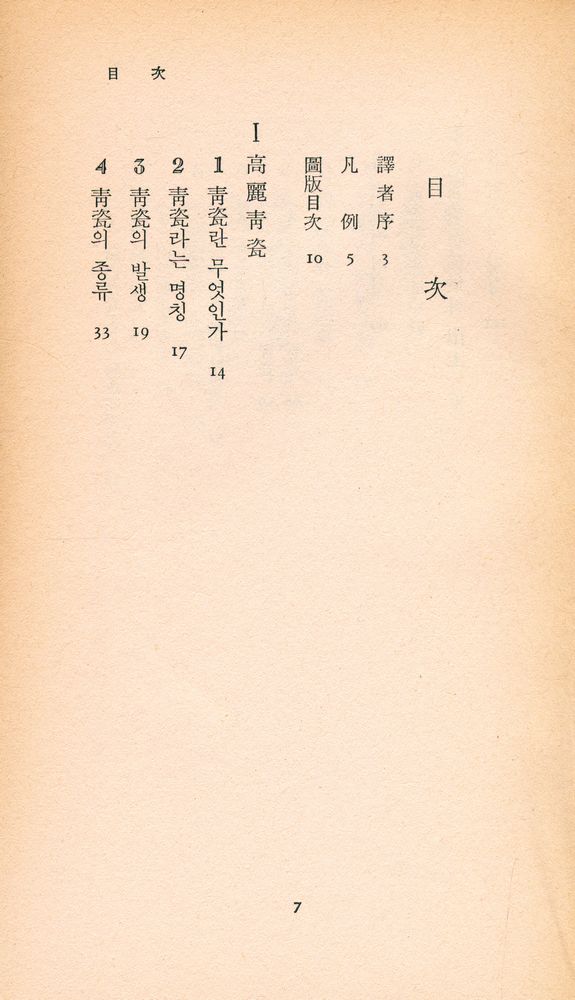 目次
目次
譯者序 3
凡例 5
圖版目次 10
I 高麗靑瓷
1 靑瓷란 무엇인가 14
2 靑瓷라는 명칭 17
3 靑瓷의 발생 19
4 靑瓷의 종류 33
7